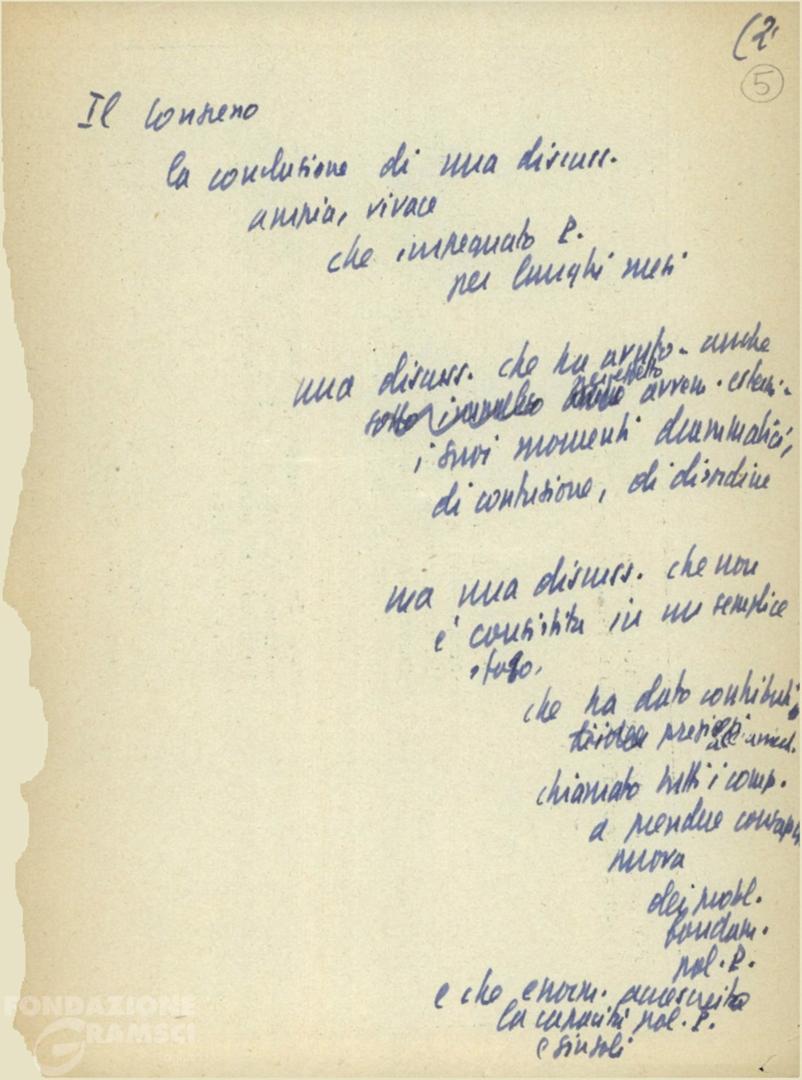 (2
5
Il Congresso
la conclusione di una discuss.
ampia, vivace
che impegnato P.
per lunghi mesi
una discuss. che ha avuto - anche
sotto avven. esterni -
i suoi momenti drammatici,
di confusione, di disordine
ma una discuss. che non
è consistita in un semplice
sfogo.
che ha dato contributi
di idee preziosi
chiamato tutti i comp.
a prendere consap.
nuova
dei probl.
fondam.
pol. P.
e che enorm. accresciuto
la capacità pol. P.
e singoli
FONDAZIONE
GRAMSCI